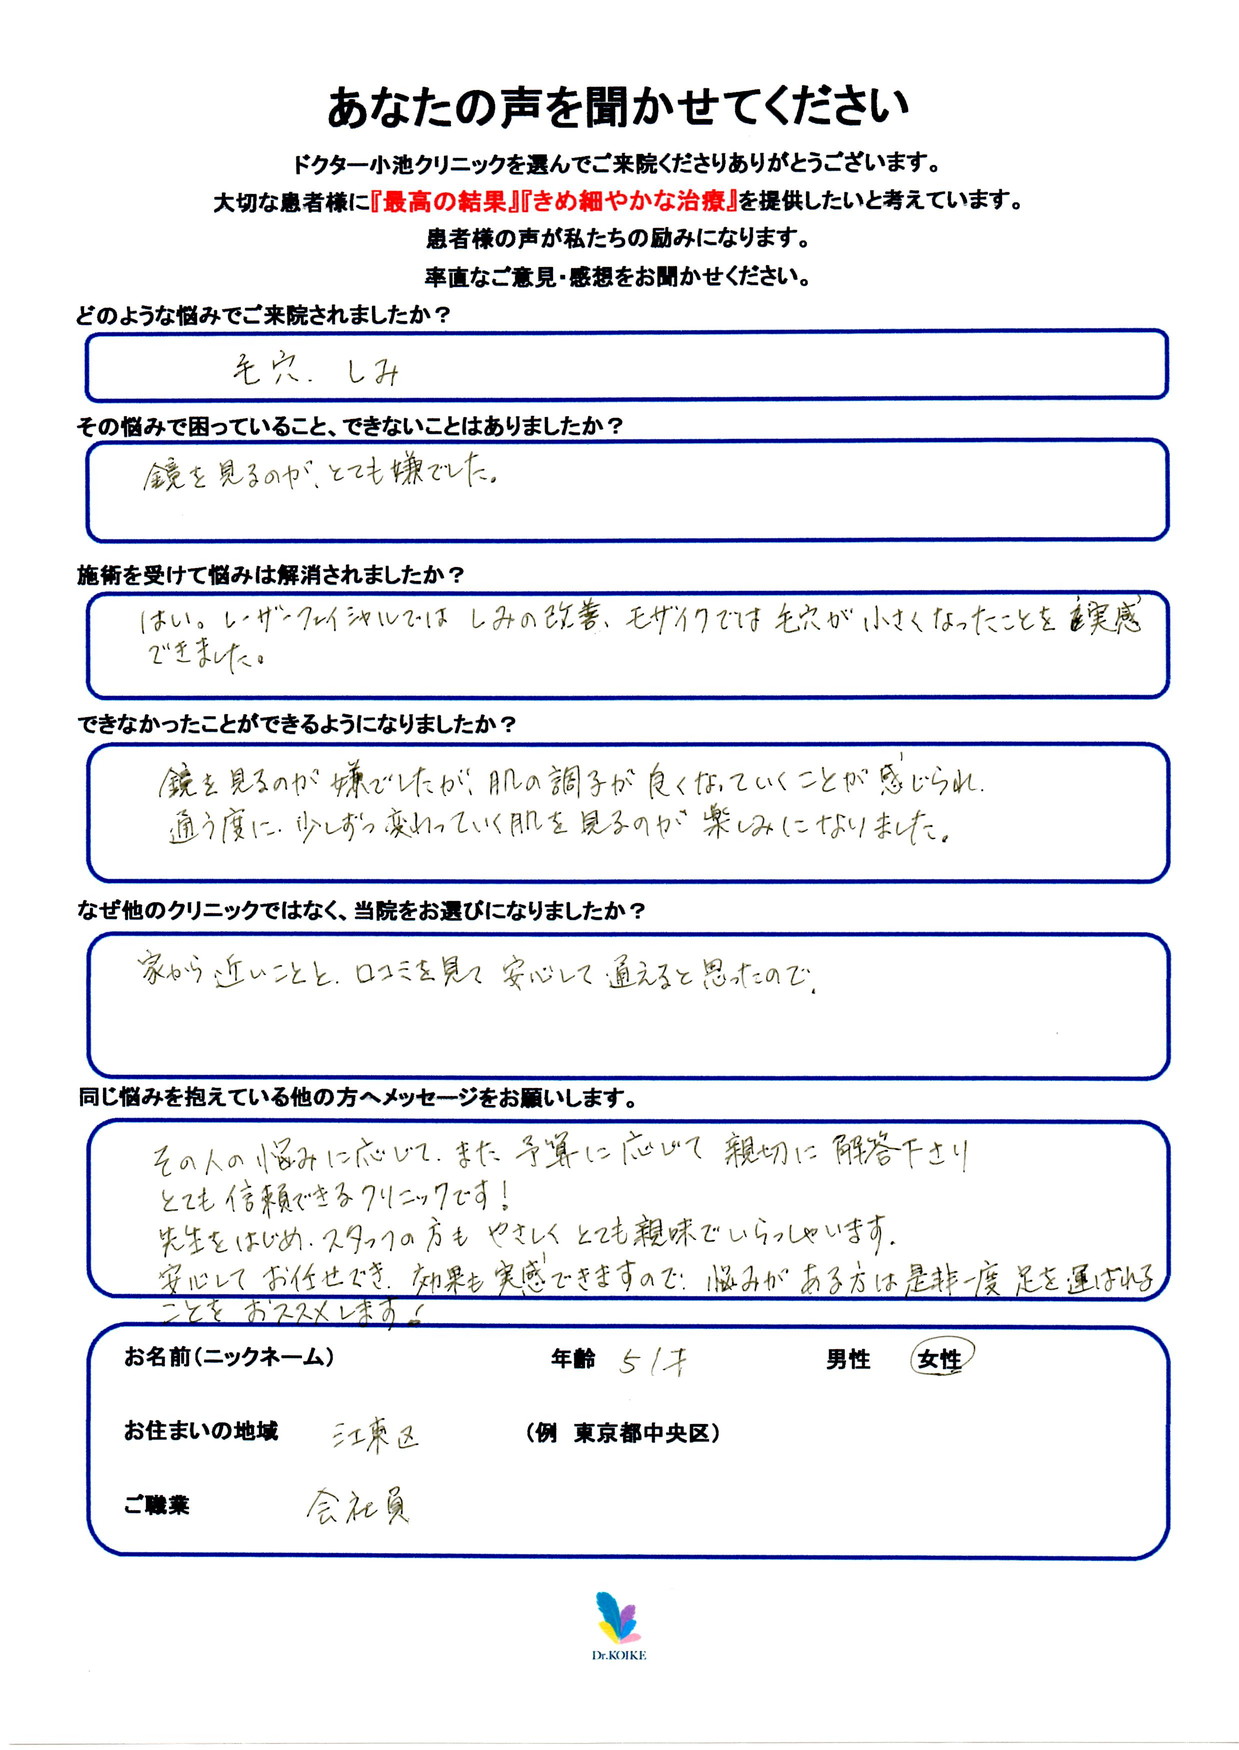 あなたの声を聞かせてください
ドクター小池クリニックを選んでご来院くださりありがとうございます。
大切な患者様に『最高の結果』『きめ細やかな治療』を提供したいと考えています。
患者様の声が私たちの励みになります。
率直なご意見・感想をお聞かせください。
どのような悩みでご来院されましたか？
毛穴. しみ
その悩みで困っていること、できないことはありましたか？
鏡を見るのが、とても嫌でした。
施術を受けて悩みは解消されましたか？
はい。レーザーフェイシャルでは しみの改善、モザイクでは 毛穴が 小さくなったことを 実感
できました。
できなかったことができるようになりましたか？
鏡を見るのが 嫌でしたが、肌の調子が 良くなっていくことが 感じられ.
通う度に. 少しずつ変わっていく肌を 見るのが 楽しみになりました。
なぜ他のクリニックではなく、当院をお選びになりましたか？
家から 近いことと. 口コミを見て 安心して 通えると思ったので.
同じ悩みを抱えている他の方へメッセージをお願いします。
その人の悩みに応じて. また 予算に応じて 親切に 解答下さり
とても信頼できるクリニックです！
先生をはじめ. スタッフの方も やさしく とても親味でいらっしゃいます.
安心して お任せでき. 効果も 実感できますので. 悩みが ある方は是非一度 足を運ばれる
ことを おススメします！
お名前（ニックネーム） 年齢 51才 男性 女性
お住まいの地域 江東区 （例 東京都中央区）
ご職業 会社員
Dr.KOIKE